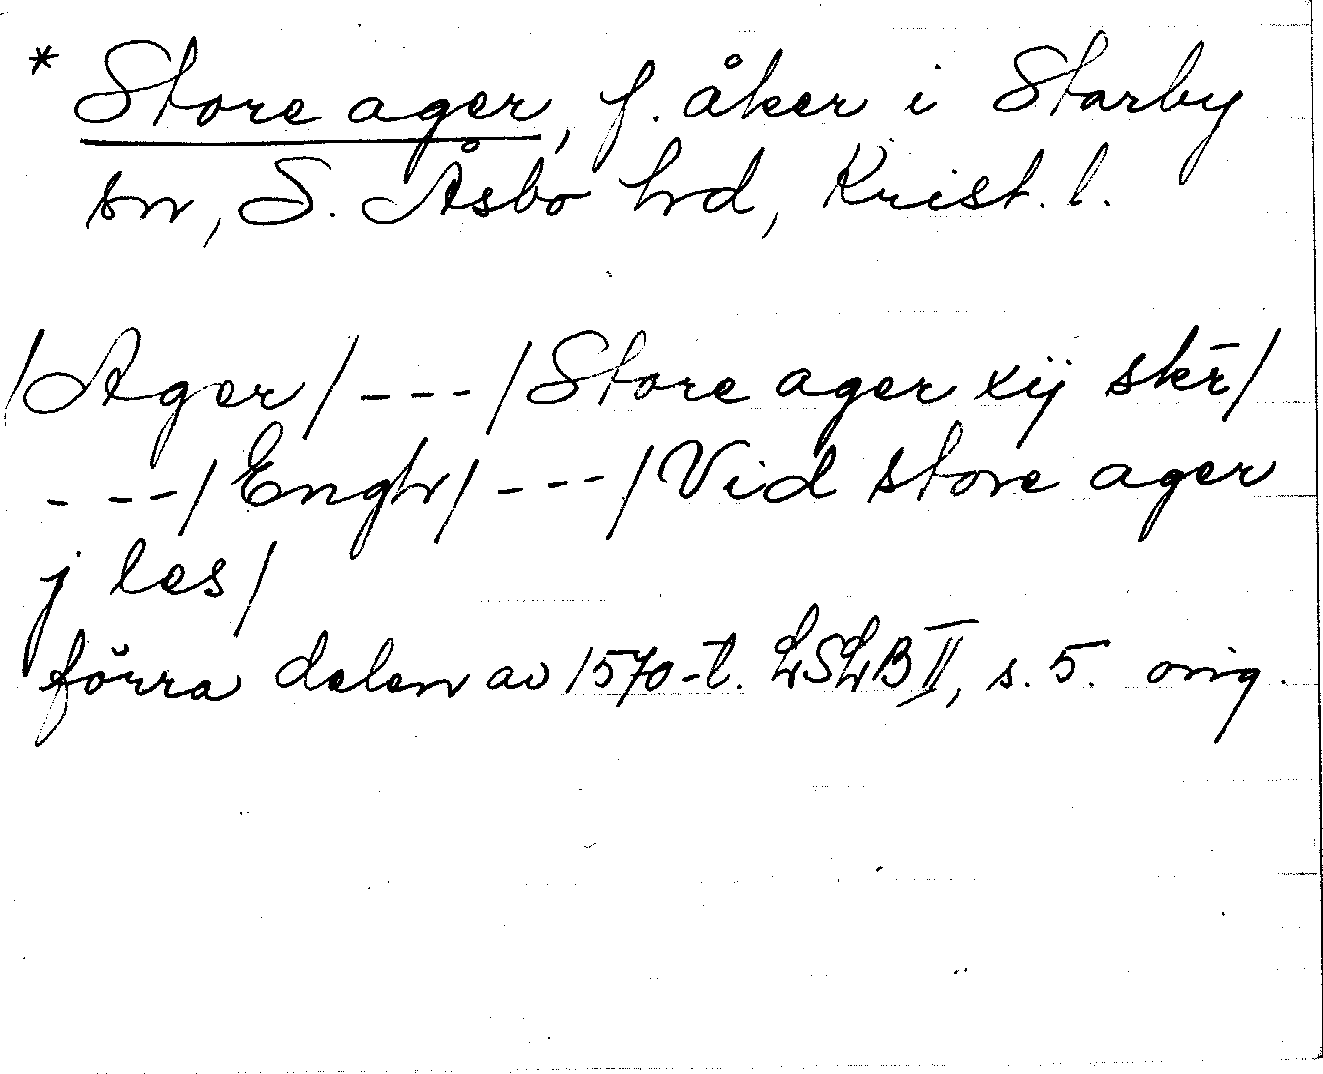 * Store ager, f. åker i Starby
sn, S. Åsbo hd, Krist. l.
/Ager/ - - - /Store ager xij skr̄/
- - - / Engh / - - - / Vid store ager
j les /
förra delen av 1570-t. LSLB II, s. 5. orig.